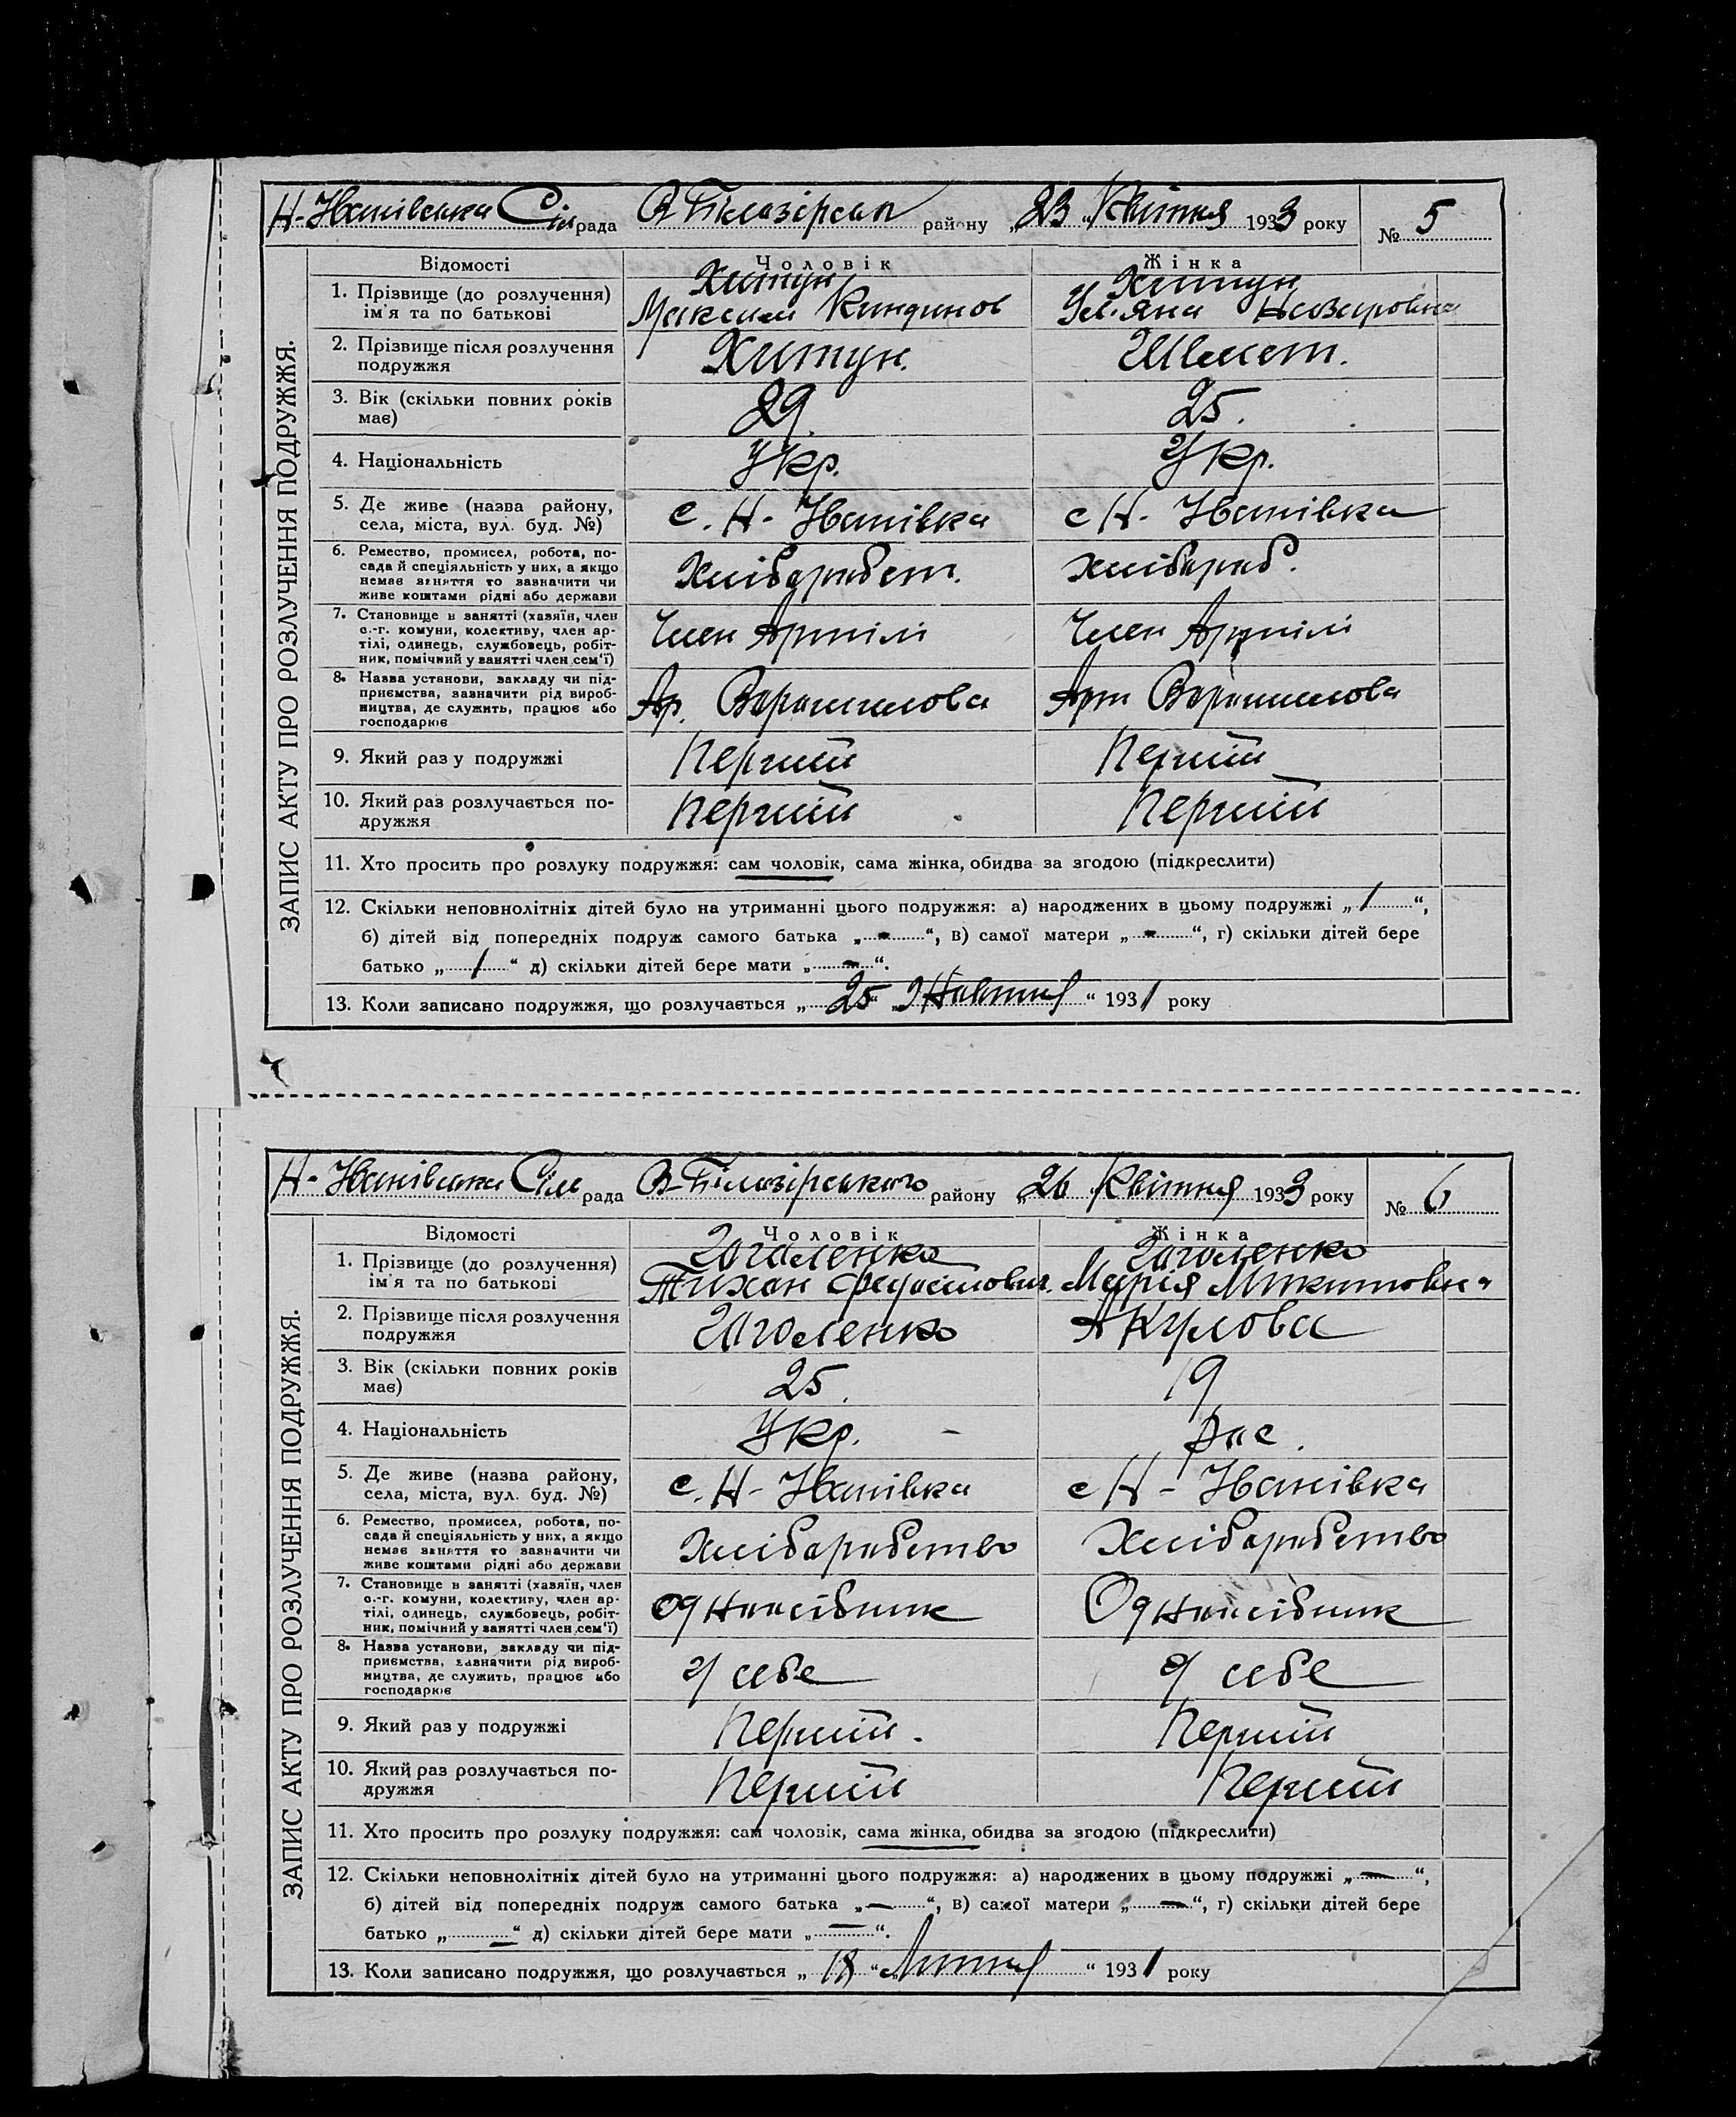 Н-Іванівська Сіль рада В Білазірськ району „23 „Квітня 1933 року № 5
ЗАПИС АКТУ ПРО РОЗЛУЧЕННЯ ПОДРУЖЖЯ.
Відомості Чоловік Жінка
1. Прізвище (до розлучення) ім'я та по батькові
Хитун Хитун
Максим Ул'яна
2. Прізвище після розлучення подружжя Хитун. Шелест.
3. Вік (скільки повних років має) 29. 25.
4. Національність Укр. Укр.
5. Де живе (назва району, села, міста, вул. буд. №) с. Н- Іванівка с Н- Іванівка
6. Ремество, промисел, робота, по-
сада й спеціяльність у них, а якщо
немає заняття то зазначити чи
живе коштами рідні або держави
Хліборобст. хлібороб.
7. Становище в занятті (хазяїн, член
с.-г. комуни, колективу, член ар-
тілі, одинець, службовець, робіт-
ник, помічний у занятті член сем'ї)
Член Артілі Член Артілі
8. Назва установи, закладу чи під-
приємства, зазначити рід вироб-
ництва, де служить, працює або
господарює
Ар. Ворошилова Арт Ворошилова
9. Який раз у подружжі Перший Перший
10. Який раз розлучається по-
дружжя Перший Перший
11. Хто просить про розлуку подружжя: сам чоловік, сама жінка, обидва за згодою (підкреслити)
12. Скільки неповнолітніх дітей було на утриманні цього подружжя: а) народжених в цьому подружжі „ 1 “,
б) дітей від попередніх подруж самого батька „ - “, в) самої матери „ - “, г) скільки дітей бере
батько „ 1 “ д) скільки дітей бере мати „ - “.
13. Коли записано подружжя, що розлучається „ 25 “ „Жовтня “ 1931 року
Н- Іванівська Сіль рада В-Білазірського району „26 „Квітня 1933 року № 6
ЗАПИС АКТУ ПРО РОЗЛУЧЕННЯ ПОДРУЖЖЯ.
Відомості Чоловік Жінка
1. Прізвище (до розлучення) ім'я та по батькові
Тихон Марія Микитовна
2. Прізвище після розлучення
подружжя Акулова
3. Вік (скільки повних років
має) 25. 19
4. Національність Укр. - рос.
5. Де живе (назва району,
села, міста, вул. буд. №) с. Н- Іванівка с Н- Іванівка
6. Ремество, промисел, робота, по-
сада й спеціяльність у них, а якщо
немає заняття то зазначити чи
живе коштами рідні або держави
Хліборобство Хліборобство
7. Становище в занятті (хазяїн, член
с.-г. комуни, колективу, член ар-
тілі, одинець, службовець, робіт-
ник, помічний у занятті член сем'ї)
Одноосібник Одноосібник
8. Назва установи, закладу чи під-
приємства, зазначити рід вироб-
ництва, де служить, працює або
господарює
У себе У себе
9. Який раз у подружжі Перший. Перший
10. Який раз розлучається по-
дружжя Перший Перший
11. Хто просить про розлуку подружжя: сам чоловік, сама жінка, обидва за згодою (підкреслити)
12. Скільки неповнолітніх дітей було на утриманні цього подружжя: а) народжених в цьому подружжі „ — “,
б) дітей від попередніх подруж самого батька „ — “, в) самої матери „ — “, г) скільки дітей бере
батько „ — “ д) скільки дітей бере мати „ — “.
13. Коли записано подружжя, що розлучається „ 18 “ „Липня “ 1931 року